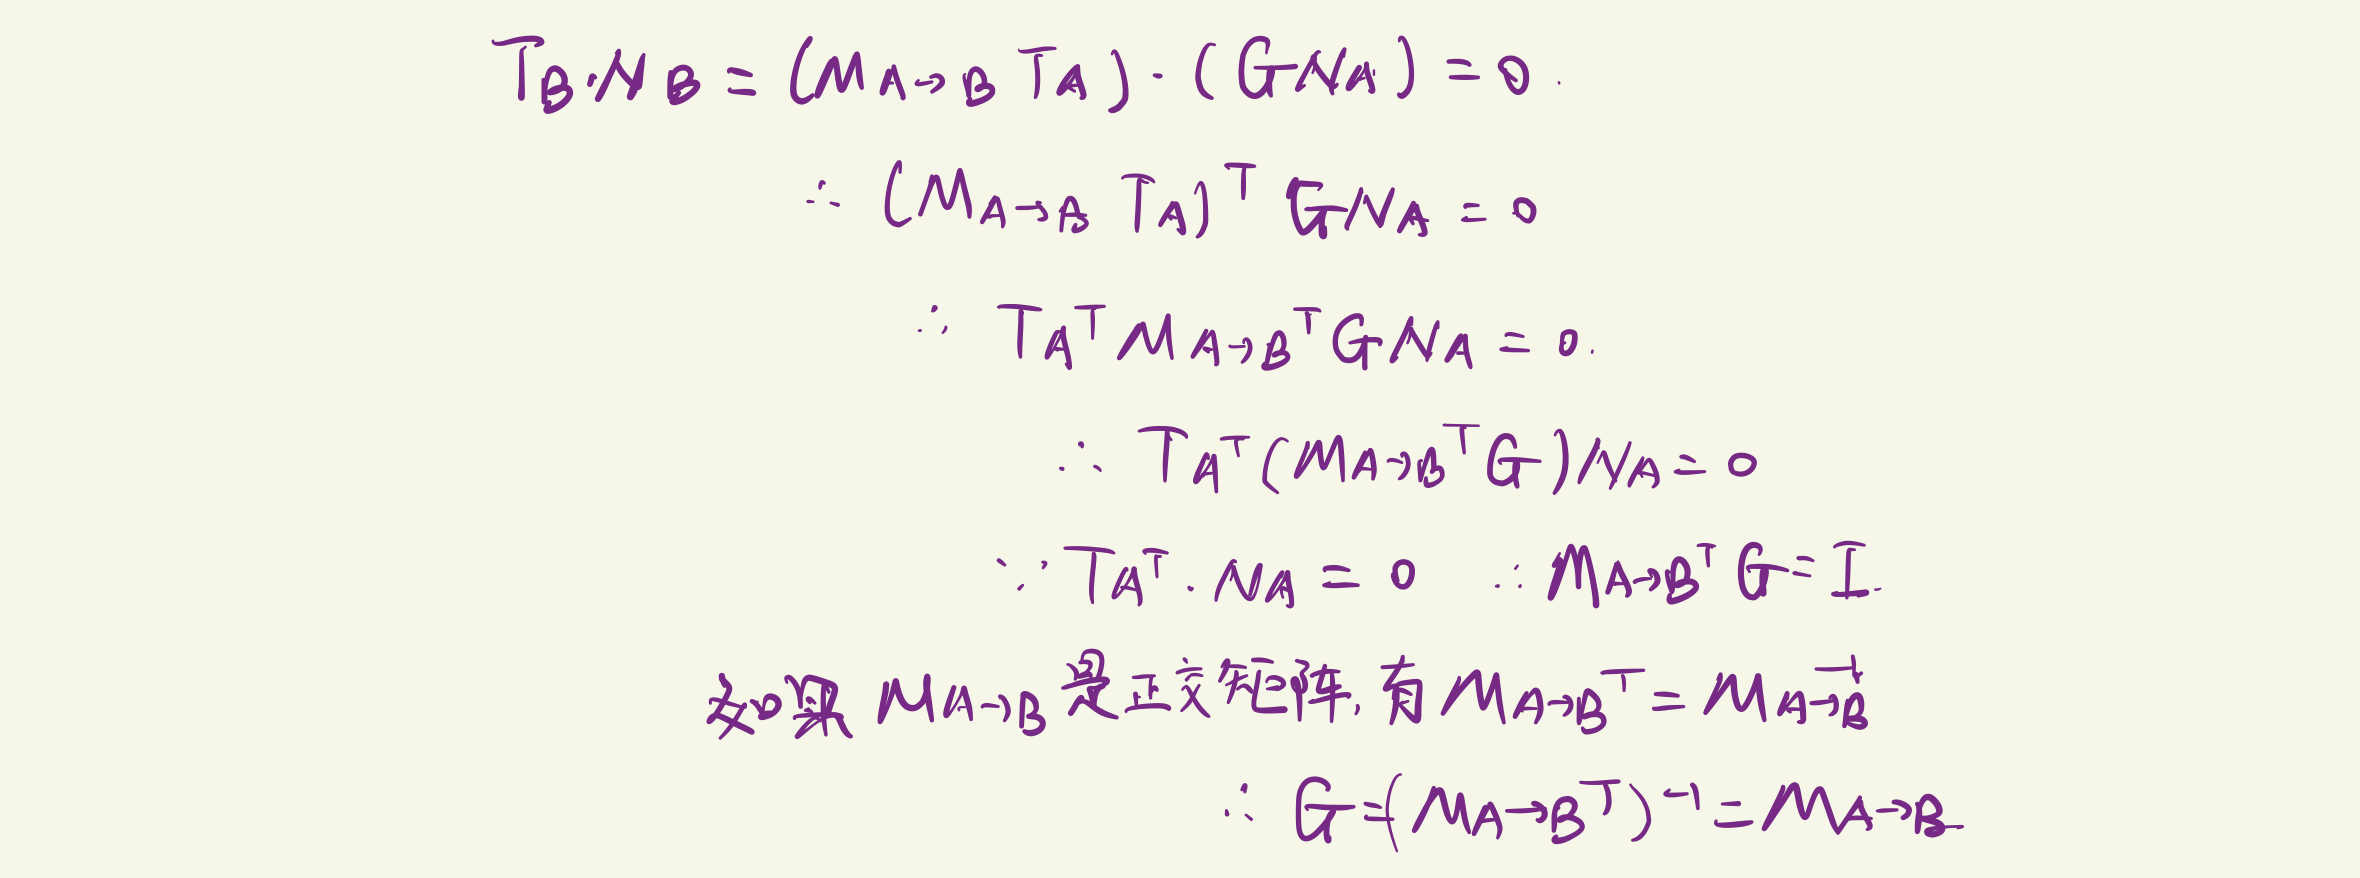 T_B·N_B = (M_{A→B} T_A)·(G N_A) = 0.
∴ (M_{A→B} T_A)^T G N_A = 0
∴ T_A^T M_{A→B}^T G N_A = 0.
∴ T_A^T (M_{A→B}^T G) N_A = 0
∵ T_A^T · N_A = 0 ∴ M_{A→B}^T G = I.
如果 M_{A→B} 是正交矩阵, 有 M_{A→B}^T = M_{A→B}^{-1}
∴ G = (M_{A→B}^T)^{-1} = M_{A→B}